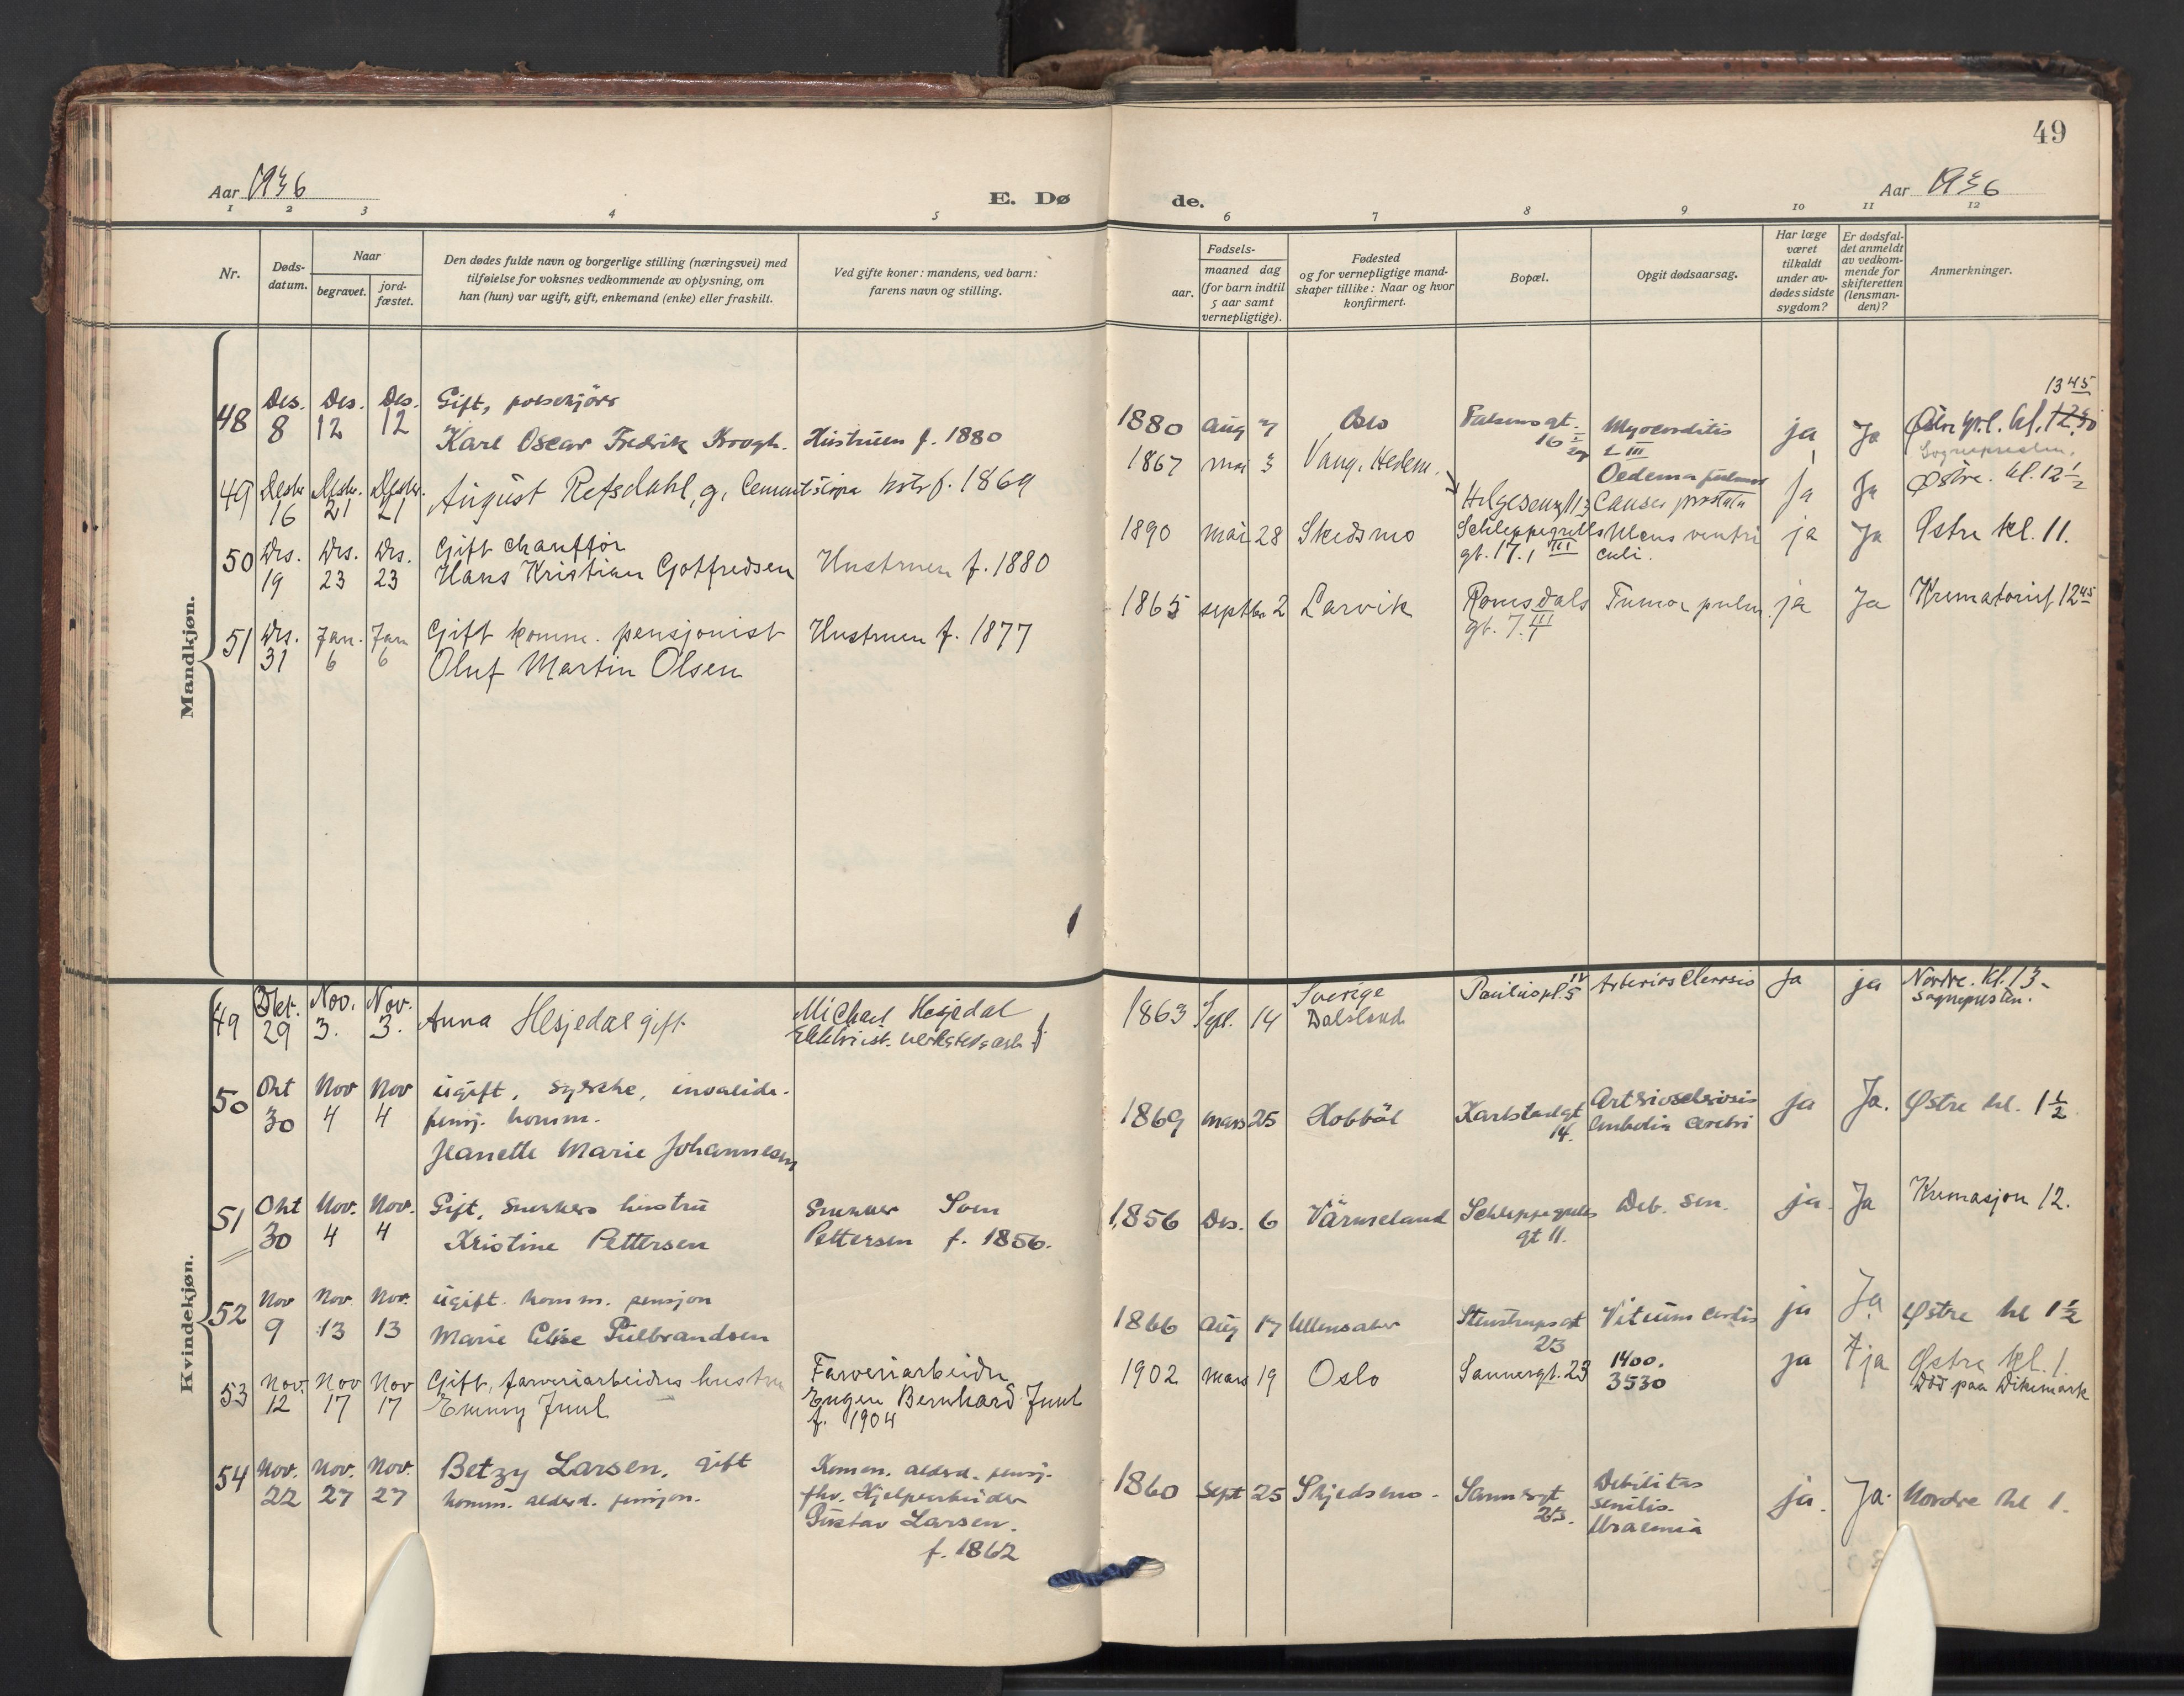 49
Aar 1936
E. Dø
de.
Aar 1936
1 2 3 4 5 6 7 8 9 10 11 12
Nr.
Døds-
datum.
Naar
begravet.
jord-
fæstet.
Den dødes fulde navn og borgerlige stilling (næringsvei) med
tilføielse for voksnes vedkommende av oplysning, om
han (hun) var ugift, gift, enkemand (enke) eller fraskilt.
Ved gifte koner: mandens, ved barn:
farens navn og stilling.
Fødsels-
aar.
maaned dag
(for barn indtil
5 aar samt
vernepligtige).
Fødested
og for vernepligtige mand-
skaper tillike: Naar og hvor
konfirmert.
Bopæl.
Opgit dødsaarsag.
Har læge
været
tilkaldt
under av-
dødes sidste
sygdom?
Er dødsfal-
det anmeldt
av vedkom-
mende for
skifteretten
(lensman-
den)?
Anmerkninger.
Mandkjøn.
48 Des. 8 Des. 12 Des. 12
Gift,
Karl Oscar Fredrik Krogh. Hustruen f. 1880
1880 Aug 7 Oslo
16
Myocarditis
ja Ja
kl. 12.30
13 45
Sognepresten.
49 Desbr. 16 Desbr. 21 Desbr. 21
August Refsdahl, g, Cementstøpe f. 1869
1867 mai 3 Vang, Hedem.
Helgesensgt 13
Oedema pulmon
Cancer prostata
Ja Ja Østre. kl. 12 1/2
50 Des. 19 Des. 23 Des. 23
Gift chauffør
Hans Kristian Gotfredsen Hustruen f. 1880
1890 mai 28 Skedsmo
Schleppegrells
gt. 17. III
Ulcus ventri
culi.
ja Ja Østre kl. 11.
51 Des. 31 Jan. 6 Jan 6
Gift komm. pensjonist Hustruen f. 1877
Oluf Martin Olsen
1865 septbr 2 Larvik
Romsdals
gt. 7. III
Tumor pulm. ja Ja Krematoriet 12 45
Kvindekjøn.
49 Okt. 29 Nov. 3. Nov. 3.
Anna Hesjedal gift
Michael Hesjedal
1863 Sept. 14
Sverige
Dalsland
Pauluspl. 5 IV
Arteriosclerosis Ja ja
Nordre. kl. 13 -
Sognepresten.
50 Okt 30 Nov 4 Nov 4
ugift, syerske, invalide-
pensj. komm.
Jeanette Marie Johannesen
1869 mars 25 Hobböl
Karlstadgt
14.
Arteriosclerosis
Embolia cerebri
ja Ja. Østre kl. 1 1/2
51 Okt 30 Nov. 4 Nov. 4
Gift, snekkers hustru
Kristine Pettersen
Snekker Sven
Pettersen f. 1856.
1856 Des. 6 Värmeland
Schleppegrells
gt 11.
Deb. sen. ja. Ja Kremasjon 12.
52 Nov 9 Nov. 13 Nov. 13
ugift. komm. pensjon
Marie Elise Gulbrandsen
1866 Aug 17 Ullensaker
Stenstrupsgt
23
Vitium cordis ja Ja Østre kl 1 1/2
53 Nov. 12 Nov 17 Nov 17
Gift, farveriarbeiders hustru
Emmy Juul
Farveriarbeider
Eugen Bernhard Juul
f. 1904
1902 mars 19 Oslo Sannergt. 23
1400.
3530
ja ja
Østre kl. 1.
Död paa Dikemark
54 Nov. 22 Nov. 27 Nov. 27
Betzy Larsen, gift
komm. alderd. pensjon.
Komm. alderd. pensj.
fhv. Hjelpearbeider
Gustav Larsen.
f. 1862
1860 Sept 25 Skjedsmo -
Sannergt
25.
Debilitas
senilis.
Uraemia
ja. Ja. Nordre kl 1.